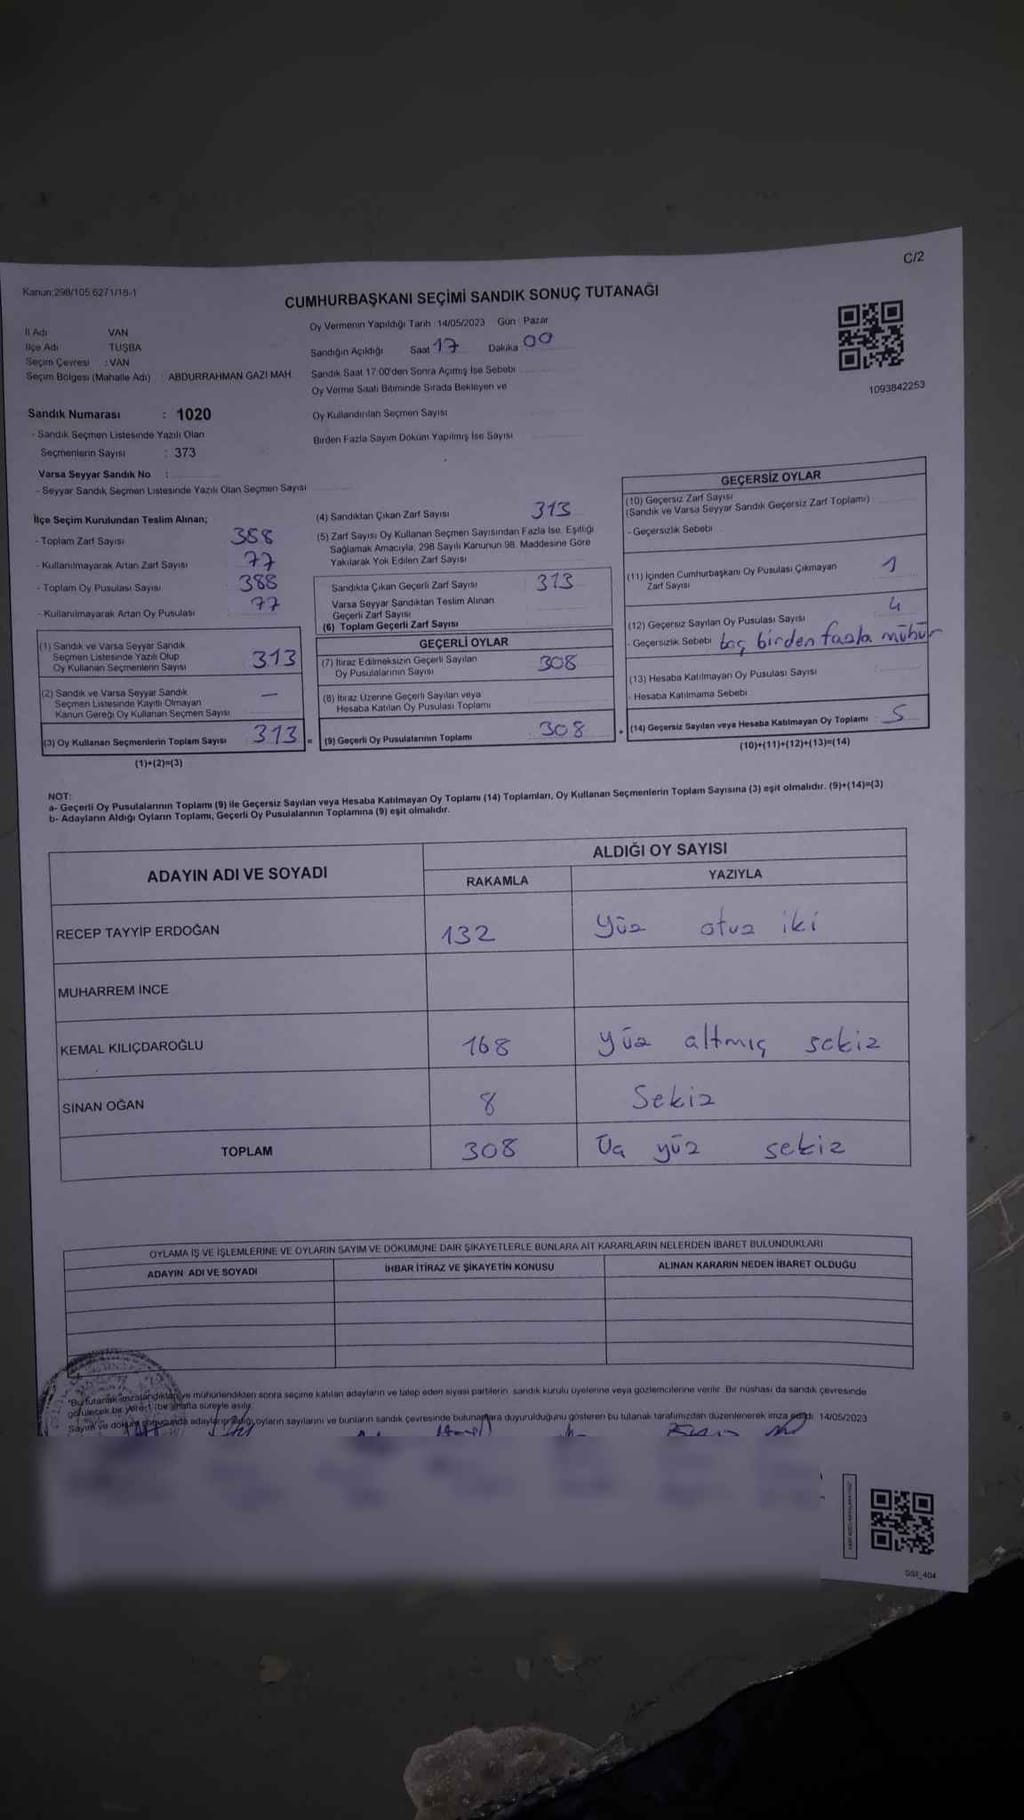 C/2
Kanun:298/105 6271/18-1
CUMHURBAŞKANI SEÇİMİ SANDIK SONUÇ TUTANAĞI
1093842253
İl Adı VAN
İlçe Adı TUŞBA
Seçim Çevresi : VAN
Seçim Bölgesi (Mahalle Adı) : ABDURRAHMAN GAZİ MAH.
Sandık Numarası : 1020
- Sandık Seçmen Listesinde Yazılı Olan
Seçmenlerin Sayısı : 373
Varsa Seyyar Sandık No :
- Seyyar Sandık Seçmen Listesinde Yazılı Olan Seçmen Sayısı
Oy Vermenin Yapıldığı Tarih : 14/05/2023 Gün : Pazar
Sandığın Açıldığı Saat 17 Dakika 00
Sandık Saat 17:00'den Sonra Açımış İse Sebebi
Oy Verme Saati Bitiminde Sırada Bekleyen ve
Oy Kullandırılan Seçmen Sayısı
Birden Fazla Sayım Döküm Yapılmış İse Sayısı
İlçe Seçim Kurulundan Teslim Alınan;
- Toplam Zarf Sayısı 388
- Kullanılmayarak Artan Zarf Sayısı 77
- Toplam Oy Pusulası Sayısı 388
- Kullanılmayarak Artan Oy Pusulası 77
(1) Sandık ve Varsa Seyyar Sandık
Seçmen Listesinde Yazılı Olup
Oy Kullanan Seçmenlerin Sayısı 313
(2) Sandık ve Varsa Seyyar Sandık
Seçmen Listesinde Kayıtlı Olmayan
Kanun Gereği Oy Kullanan Seçmen Sayısı —
(3) Oy Kullanan Seçmenlerin Toplam Sayısı 313 =
(1)+(2)=(3)
(4) Sandıktan Çıkan Zarf Sayısı 313
(5) Zarf Sayısı Oy Kullanan Seçmen Sayısından Fazla İse, Eşitliği
Sağlamak Amacıyla, 298 Sayılı Kanunun 98. Maddesine Göre
Yakılarak Yok Edilen Zarf Sayısı
Sandıkta Çıkan Geçerli Zarf Sayısı 313
Varsa Seyyar Sandıktan Teslim Alınan
Geçerli Zarf Sayısı
(6) Toplam Geçerli Zarf Sayısı
GEÇERLİ OYLAR
(7) İtiraz Edilmeksizin Geçerli Sayılan
Oy Pusulalarının Sayısı 308
(8) İtiraz Üzerine Geçerli Sayılan veya
Hesaba Katılan Oy Pusulası Toplamı
(9) Geçerli Oy Pusulalarının Toplamı 308 +
GEÇERSİZ OYLAR
(10) Geçersiz Zarf Sayısı
(Sandık ve Varsa Seyyar Sandık Geçersiz Zarf Toplamı)
- Geçersizlik Sebebi
(11) İçinden Cumhurbaşkanı Oy Pusulası Çıkmayan
Zarf Sayısı 1
(12) Geçersiz Sayılan Oy Pusulası Sayısı 4
- Geçersizlik Sebebi boş birden fazla mühür
(13) Hesaba Katılmayan Oy Pusulası Sayısı
- Hesaba Katılmama Sebebi
(14) Geçersiz Sayılan veya Hesaba Katılmayan Oy Toplamı 5
(10)+(11)+(12)+(13)=(14)
NOT:
a- Geçerli Oy Pusulalarının Toplamı (9) ile Geçersiz Sayılan veya Hesaba Katılmayan Oy Toplamı (14) Toplamları, Oy Kullanan Seçmenlerin Toplam Sayısına (3) eşit olmalıdır. (9)+(14)=(3)
b- Adayların Aldığı Oyların Toplamı, Geçerli Oy Pusulalarının Toplamına (9) eşit olmalıdır.
ADAYIN ADI VE SOYADI
ALDIĞI OY SAYISI
RAKAMLA YAZIYLA
RECEP TAYYİP ERDOĞAN 132 Yüz otuz iki
MUHARREM İNCE
KEMAL KILIÇDAROĞLU 168 yüz altmış sekiz
SİNAN OĞAN 8 Sekiz
TOPLAM 308 Üç yüz sekiz
OYLAMA İŞ VE İŞLEMLERİNE VE OYLARIN SAYIM VE DÖKÜMÜNE DAİR ŞİKAYETLERLE BUNLARA AİT KARARLARIN NELERDEN İBARET BULUNDUKLARI
ADAYIN ADI VE SOYADI İHBAR İTİRAZ VE ŞİKAYETİN KONUSU ALINAN KARARIN NEDEN İBARET OLDUĞU
"Bu tutanak imzalandıktan ve mühürlendikten sonra seçime katılan adayların ve talep eden siyasi partilerin sandık kurulu üyelerine veya gözlemcilerine verilir. Bir nüshası da sandık çevresinde
görülecek bir yere bir hafta süreyle asılır.
Sayım ve döküm sonucunda adayların aldığı oyların sayılarını ve bunların sandık çevresinde bulunanlara duyurulduğunu gösteren bu tutanak tarafımızdan düzenlenerek imza edildi. 14/05/2023
GSI_404